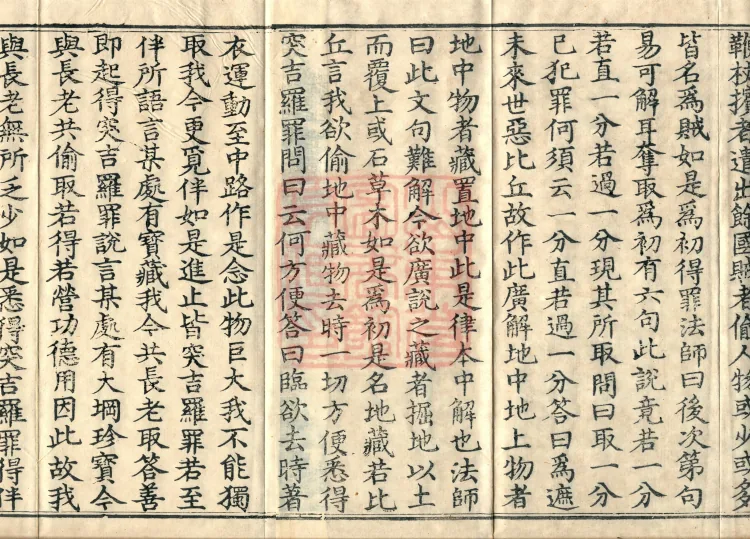 鞭杖擯者遣出餘國賊者偷人物或少或多
皆名為賊如是為初得罪法師曰後次第句
易可解耳奪取為初有六句此說竟若一分
若直一分若過一分現其所取問曰取一分
已犯罪何須云一分直若過一分答曰為遮
未來世惡比丘故作此廣解地中地上物者
地中物者藏置地中此是律本中解也法師
曰此文句難解今欲廣說之藏者掘地以土
而覆上或石草木如是為初是名地藏若比
丘言我欲偷地中藏物去時一切方便悉得
突吉羅罪問曰云何方便答曰臨欲去時著
衣運動至中路作是念此物巨大我不能獨
取我今更覓伴如是進止皆突吉羅罪若至
伴所語言某處有寶藏我今共長老取答善
即起得突吉羅罪說言某處有大堈珍寶今
與長老共偷取若得若營功德用因此故我
與長老無所乏少如是悉得突吉羅罪得伴